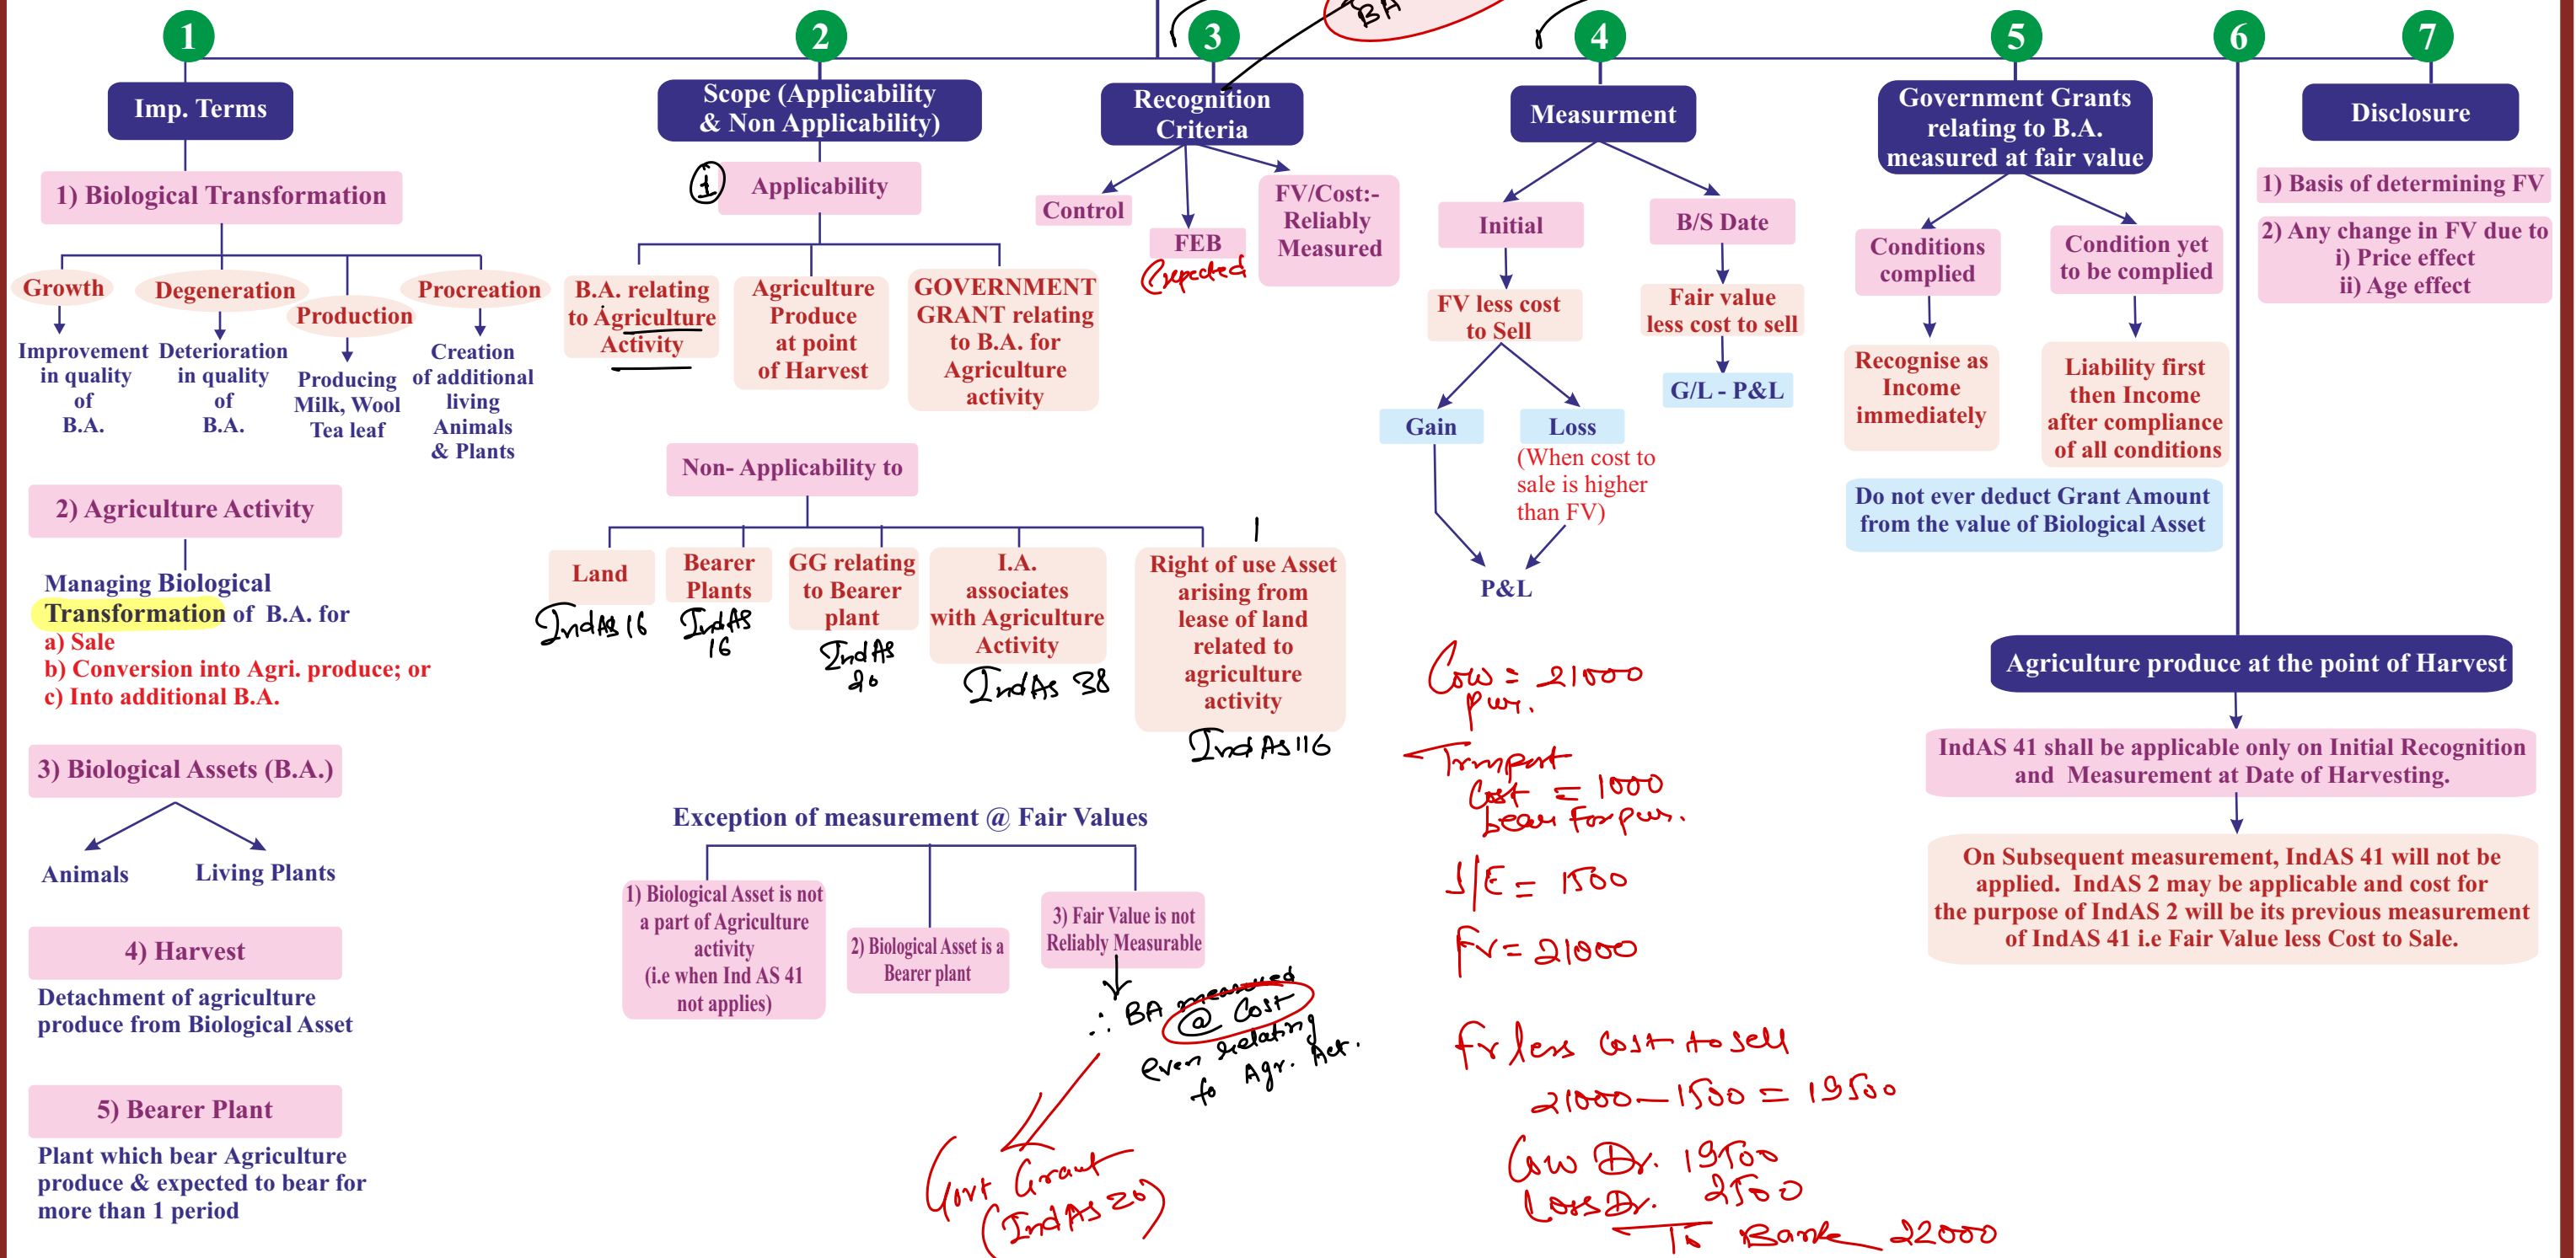 1
2
3
4
5
6
7
BA
Imp. Terms
1) Biological Transformation
Growth
Degeneration
Production
Procreation
Improvement
in quality
of
B.A.
Deterioration
in quality
of
B.A.
Producing
Milk, Wool
Tea leaf
Creation
of additional
living
Animals
& Plants
2) Agriculture Activity
Managing Biological
Transformation of B.A. for
a) Sale
b) Conversion into Agri. produce; or
c) Into additional B.A.
3) Biological Assets (B.A.)
Animals
Living Plants
4) Harvest
Detachment of agriculture
produce from Biological Asset
5) Bearer Plant
Plant which bear Agriculture
produce & expected to bear for
more than 1 period
Scope (Applicability
& Non Applicability)
1
Applicability
B.A. relating
to Agriculture
Activity
Agriculture
Produce
at point
of Harvest
GOVERNMENT
GRANT relating
to B.A. for
Agriculture
activity
Non- Applicability to
Land
IndAS 16
Bearer
Plants
IndAS
16
GG relating
to Bearer
plant
IndAS
20
I.A.
associates
with Agriculture
Activity
IndAs 38
Right of use Asset
arising from
lease of land
related to
agriculture
activity
IndAs 116
Exception of measurement @ Fair Values
1) Biological Asset is not
a part of Agriculture
activity
(i.e when Ind AS 41
not applies)
2) Biological Asset is a
Bearer plant
3) Fair Value is not
Reliably Measurable
∴ BA measured
@ Cost
even relating
to Agr. Act.
Govt Grant
(IndAs 20)
Recognition
Criteria
Control
FEB
Expected
FV/Cost:-
Reliably
Measured
Measurment
Initial
FV less cost
to Sell
Gain
Loss
(When cost to
sale is higher
than FV)
P&L
B/S Date
Fair value
less cost to sell
G/L - P&L
Cow = 21000
pur.
Trnsport
Cost = 1000
bear for pur.
S/E = 1500
FV = 21000
FV less cost to sell
21000 - 1500 = 19500
Cow Dr. 19500
Loss Dr. 2500
To Bank 22000
Government Grants
relating to B.A.
measured at fair value
Conditions
complied
Recognise as
Income
immediately
Condition yet
to be complied
Liability first
then Income
after compliance
of all conditions
Do not ever deduct Grant Amount
from the value of Biological Asset
Agriculture produce at the point of Harvest
IndAS 41 shall be applicable only on Initial Recognition
and Measurement at Date of Harvesting.
On Subsequent measurement, IndAS 41 will not be
applied. IndAS 2 may be applicable and cost for
the purpose of IndAS 2 will be its previous measurement
of IndAS 41 i.e Fair Value less Cost to Sale.
Disclosure
1) Basis of determining FV
2) Any change in FV due to
i) Price effect
ii) Age effect